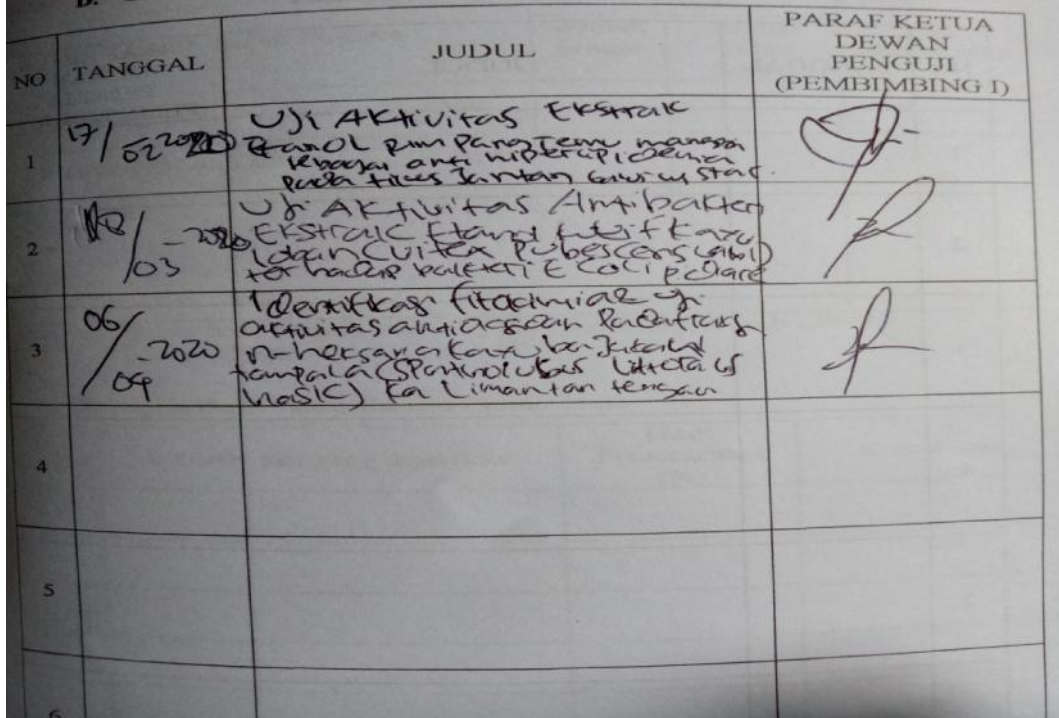 NO TANGGAL JUDUL PARAF KETUA
DEWAN
PENGUJI
(PEMBIMBING I)
1 17/02 2020 Uji Aktivitas Ekstrak
Etanol Temu mangga
sebagai anti
pada tikus Jantan
2 /03 - 2020 Uji Aktivitas Antibakteri
Ekstrak Etanol
(Vitex Pubescens Vahl)
terhadap bakteri E Coli
3 06/04 - 2020 Identifikasi fitokimia
aktivitas antioksidan
n-heksana kayu bajakah
tampala (Spatholobus Littoralis
hassk) Kalimantan tengah
4
5
6